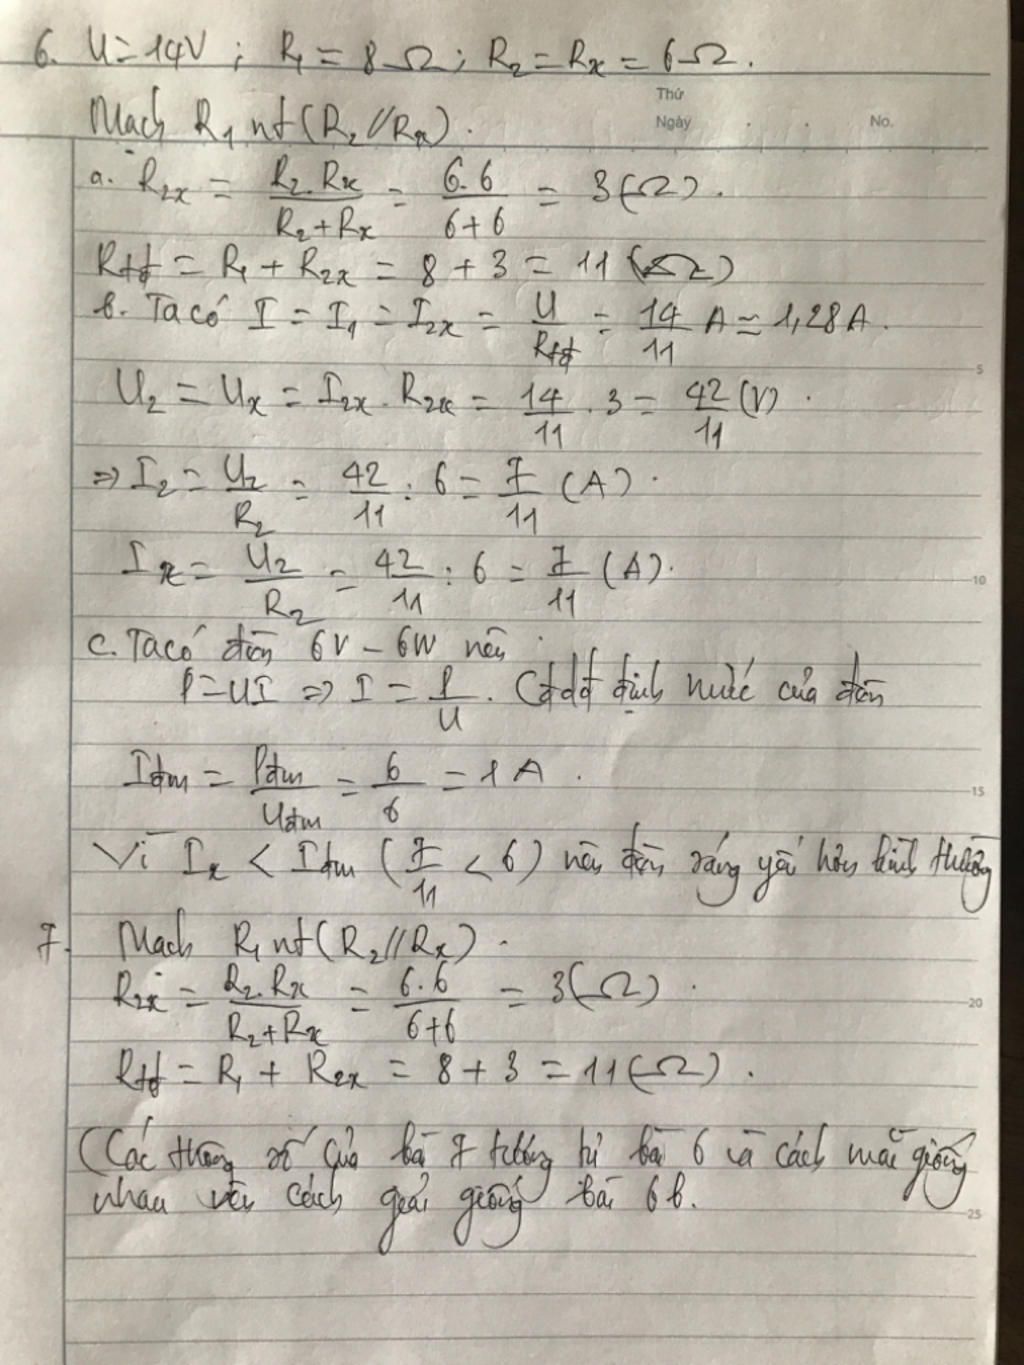 6. U=14V ; R₁ = 8Ω ; R₂ = Rₓ = 6Ω.
Thứ
Mạch R₁ nt (R₂ // Rₓ).
Ngày . . No.
a. R₂ₓ = R₂.Rₓ / R₂+Rₓ = 6.6 / 6+6 = 3(Ω).
Rtđ = R₁ + R₂ₓ = 8 + 3 = 11 (Ω)
b. Ta có I = I₁ = I₂ₓ = U / Rtđ = 14/11 A ≃ 1,28A.
5
U₂ = Uₓ = I₂ₓ . R₂ₓ = 14/11 . 3 = 42/11 (V) .
⇒ I₂ = U₂/R₂ = 42/11 : 6 = 7/11 (A) .
Iₓ = U₂/R₂ = 42/11 : 6 = 7/11 (A).
10
c. Ta có đèn 6V – 6W nên
P=UI ⇒ I = P/U . Cđdđ định mức của đèn
Iđm = Pđm/Uđm = 6/6 = 1 A .
15
Vì Iₓ < Iđm (7/11 < 6) nên đèn sáng yếu hơn bình thường
7. Mạch R₁ nt (R₂ // Rₓ) .
R₂ₓ = R₂.Rₓ / R₂+Rₓ = 6.6 / 6+6 = 3(Ω) .
20
Rtđ = R₁ + R₂ₓ = 8 + 3 = 11(Ω) .
(Các thông số của bài 7 tương tự bài 6 và cách mắc giống
nhau nên cách giải giống bài 6b.
25